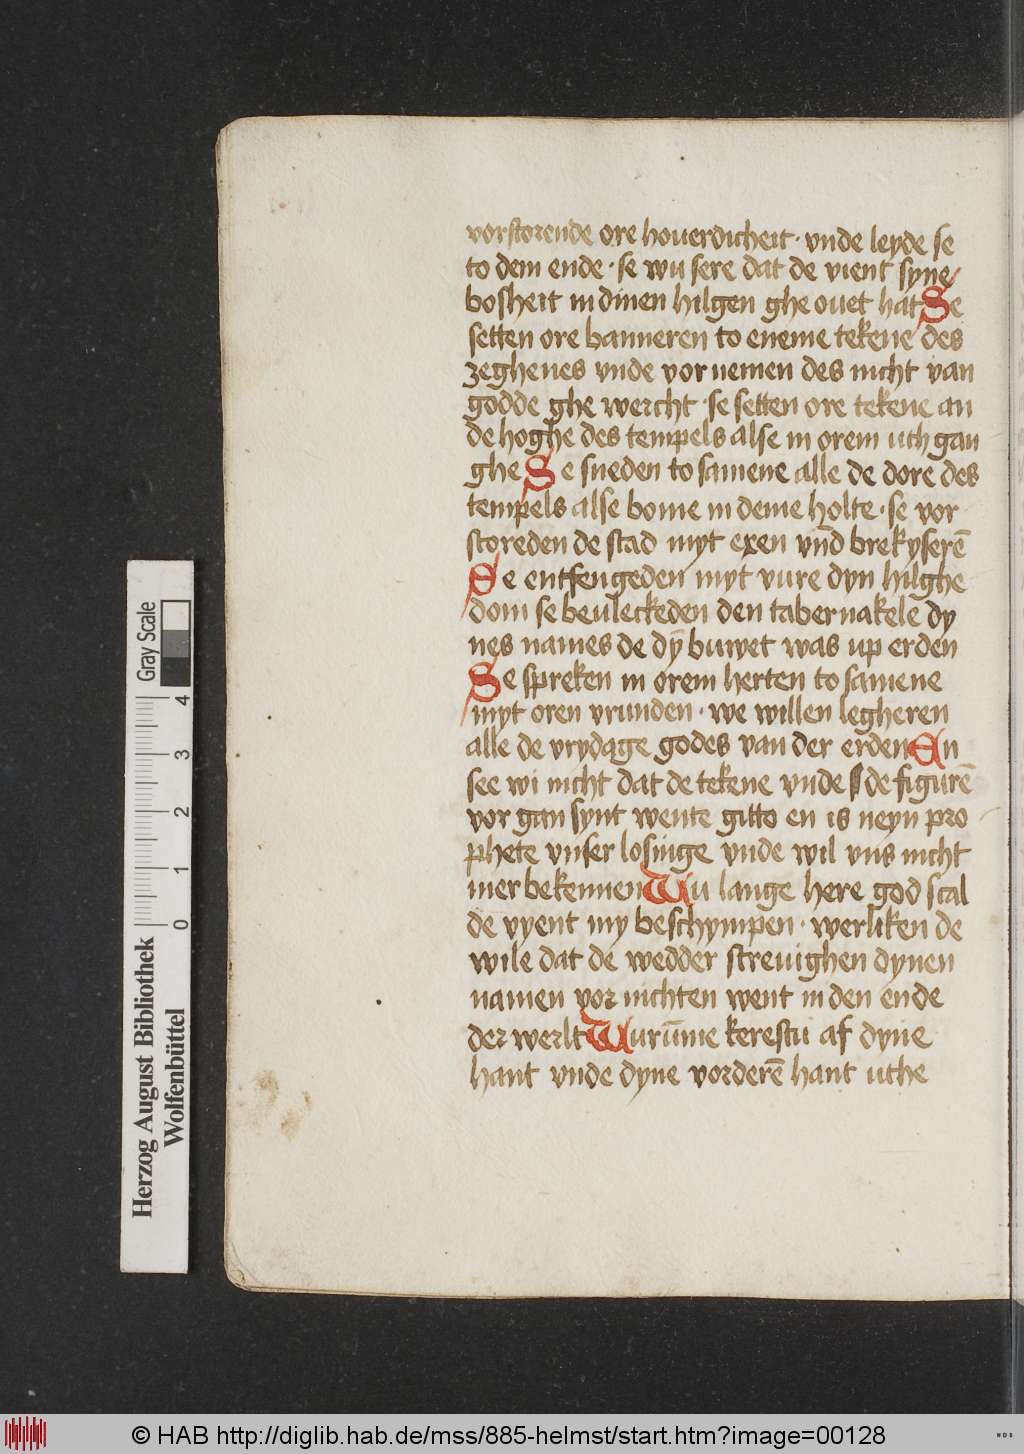 vorstorende ore houerdicheit · vnde leyde se
to dem ende · se wu sere dat de vient syne
bosheit in dinen hilgen ghe ouet hat Se
setten ore banneren to eneme tekene des
zeghenes vnde vor nemen des nicht van
godde ghe wercht · se setten ore tekene an
de hoghe des tempels alse in orem uth gan
ghe Se sneden to samene alle de dore des
tempels alse bome in deme holte · se vor
storeden de stad myt exen vnd brekyserē
Se entfengeden myt vure dyn hilghe
dom se beuleckeden den tabernakele dy
nes names de dȳ buwet was up erden
Se spreken in orem herten to samene
myt oren vrunden · we willen legheren
alle de vrydage godes van der erden En
see wi nicht dat de tekene vnde de figurē
vor gan synt wente gitto en is neyn pro
phete vnser losinge vnde wil vns nicht
mer bekennen Wu lange here god scal
de vyent my beschympen · werliken de
wile dat de wedder streuighen dynen
namen vor nichten went in den ende
der werlt Wurūme kerestu af dyne
hant vnde dyne vorderē hant uthe
Herzog August Bibliothek
Wolfenbüttel
0 1 2 3 4
Gray Scale
© HAB http://diglib.hab.de/mss/885-helmst/start.htm?image=00128